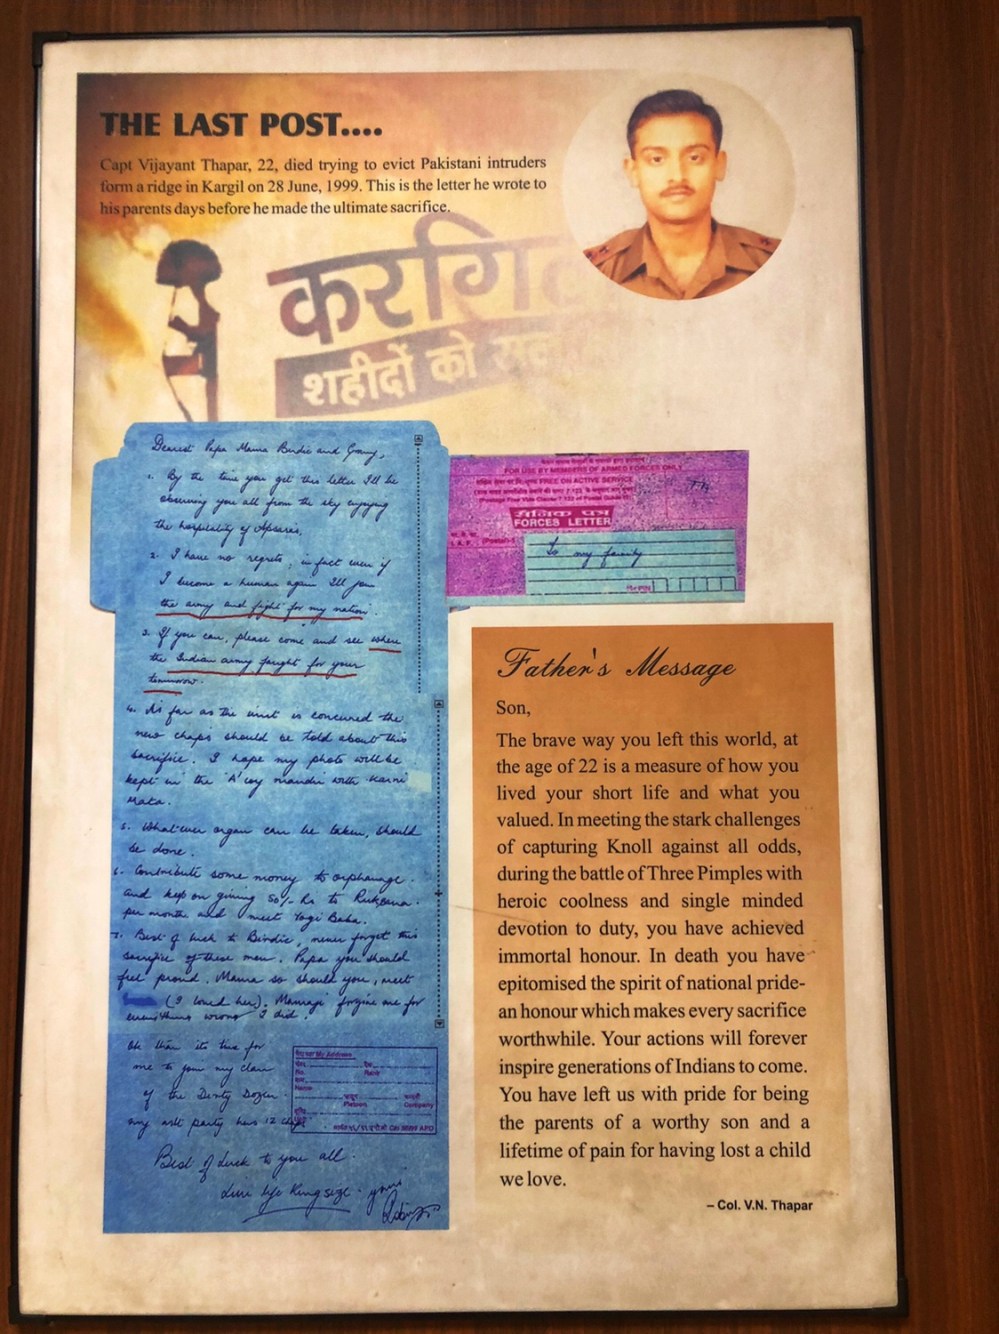 THE LAST POST....
Capt Vijayant Thapar, 22, died trying to evict Pakistani intruders
form a ridge in Kargil on 28 June, 1999. This is the letter he wrote to
his parents days before he made the ultimate sacrifice.
करगि
शहीदों को
Dearest Papa Mama Birdie and Granny,
1. By the time you get this letter I'll be
observing you all from the sky enjoying
the hospitality of Apsaras.
2. I have no regrets, in fact even if
I become a human again I'll join
the army and fight for my nation.
3. If you can, please come and see where
the Indian army fought for your
tommrow.
4. As far as the unit is concured the
new chaps should be told about this
sacrifice. I hope my photo will be
kept in the 'A' coy mandir with Karni
Mata.
5. Whatever organ can be taken, should
be done.
6. Contribute some money to orphanage
and kep on giving 50/- Rs to Ruksana
per month and meet Yogi Baba.
7. Best of luck to Birdie, never forget this
sacrifice of these men. Papa you should
feel proud. Mama so should you, meet
(I loved her). Mamaji forgive me for
everything wrong I did.
Ok then its time for
me to join my clan
of the Dirty Dozen
my aslt party has 12 chaps
Best of Luck to you all.
Live life Kingsize. yours
Robin
My Address
No. Rank
Name
Platoon Company
C/o 56 APO
FOR USE BY MEMBERS OF ARMED FORCES ONLY
FREE ON ACTIVE SERVICE
सैनिक पत्र
FORCES LETTER
To my family
PIN
Father's Message
Son,
The brave way you left this world, at
the age of 22 is a measure of how you
lived your short life and what you
valued. In meeting the stark challenges
of capturing Knoll against all odds,
during the battle of Three Pimples with
heroic coolness and single minded
devotion to duty, you have achieved
immortal honour. In death you have
epitomised the spirit of national pride-
an honour which makes every sacrifice
worthwhile. Your actions will forever
inspire generations of Indians to come.
You have left us with pride for being
the parents of a worthy son and a
lifetime of pain for having lost a child
we love.
– Col. V.N. Thapar